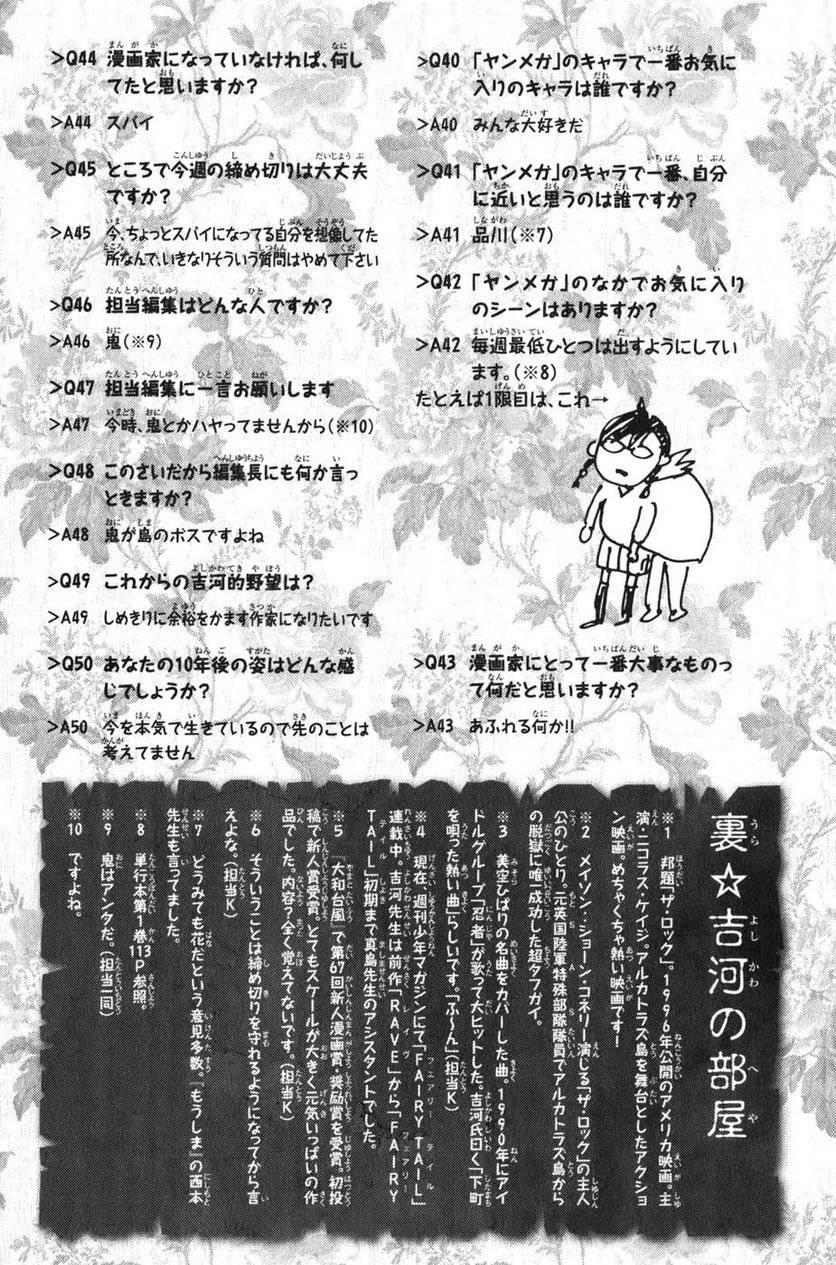 >Q40 「ヤンメガ」のキャラで一番お気に
入りのキャラは誰ですか?
>A40 みんな大好きだ
>Q41 「ヤンメガ」のキャラで一番、自分
に近いと思うのは誰ですか?
>A41 品川(※7)
>Q42 「ヤンメガ」のなかでお気に入り
のシーンはありますか?
>A42 毎週最低ひとつは出すようにしてい
ます。(※8)
たとえば1限目は、これ→
>Q43 漫画家にとって一番大事なものっ
て何だと思いますか?
>A43 あふれる何か!!
>Q44 漫画家になっていなければ、何し
てたと思いますか?
>A44 スパイ
>Q45 ところで今週の締め切りは大丈夫
ですか?
>A45 今、ちょっとスパイになってる自分を想像してた
所なんで、いきなりそういう質問はやめて下さい
>Q46 担当編集はどんな人ですか?
>A46 鬼(※9)
>Q47 担当編集に一言お願いします
>A47 今時、鬼とかハヤってませんから(※10)
>Q48 このさいだから編集長にも何か言っ
ときますか?
>A48 鬼が島のボスですよね
>Q49 これからの吉河的野望は?
>A49 しめきりに余裕をかます作家になりたいです
>Q50 あなたの10年後の姿はどんな感
じでしょうか?
>A50 今を本気で生きているので先のことは
考えてません
裏☆吉河の部屋
※1 邦題「ザ・ロック」。1996年公開のアメリカ映画。主
演・ニコラス・ケイジ。アルカトラズ島を舞台としたアクショ
ン映画。めちゃくちゃ熱い映画です!
※2 メイソン・ショーン・コネリー演じる「ザ・ロック」の主人
公のひとり。元英国陸軍特殊部隊隊員でアルカトラズ島から
の脱獄に唯一成功した超タフガイ。
※3 美空ひばりの名曲をカバーした曲。1990年にアイ
ドルグループ「忍者」が歌って大ヒットした。吉河氏曰く「下町
を唄った熱い曲」らしいです。「ふ〜ん」(担当K)
※4 現在、週刊少年マガジンにて「FAIRY TAIL」
連載中。吉河先生は前作「RAVE」から「FAIRY
TAIL」初期まで真島先生のアシスタントでした。
※5 『大和台風』で第67回新人漫画賞・奨励賞を受賞。初投
稿で新人賞受賞。とてもスケールが大きく元気いっぱいの作
品でした。内容?全く覚えてないです。(担当K)
※6 そういうことは締め切りを守れるようになってから言
えよな。(担当K)
※7 どうみても花だという意見多数。『もうしま』の西本
先生も言ってました。
※8 単行本第1巻113P参照。
※9 鬼はアンタだ。(担当一同)
※10 ですよね。